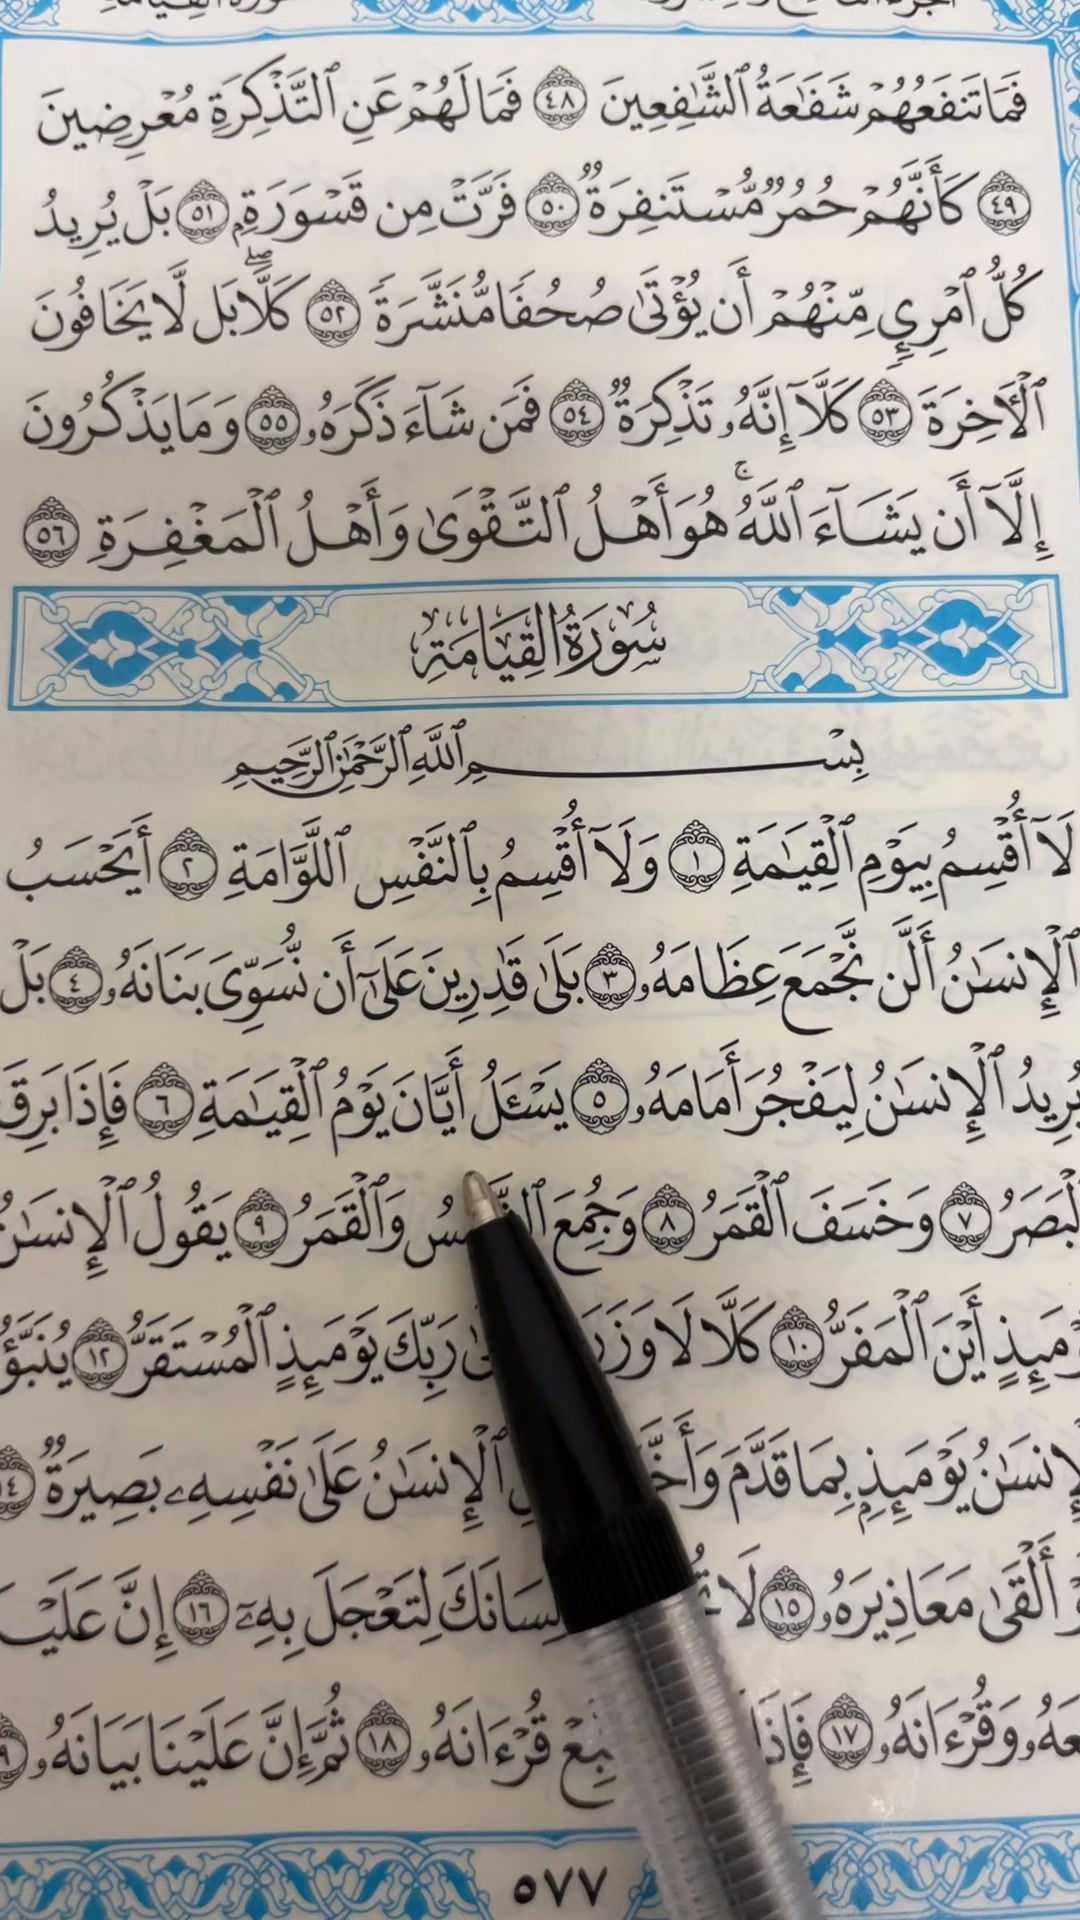 فَمَا تَنفَعُهُمْ شَفَٰعَةُ ٱلشَّٰفِعِينَ ٤٨ فَمَا لَهُمْ عَنِ ٱلتَّذْكِرَةِ مُعْرِضِينَ
٤٩ كَأَنَّهُمْ حُمُرٌ مُّسْتَنفِرَةٌ ٥٠ فَرَّتْ مِن قَسْوَرَةٍۭ ٥١ بَلْ يُرِيدُ
كُلُّ ٱمْرِئٍ مِّنْهُمْ أَن يُؤْتَىٰ صُحُفًا مُّنَشَّرَةً ٥٢ كَلَّاۖ بَل لَّا يَخَافُونَ
ٱلْأَخِرَةَ ٥٣ كَلَّآ إِنَّهُۥ تَذْكِرَةٌ ٥٤ فَمَن شَآءَ ذَكَرَهُۥ ٥٥ وَمَا يَذْكُرُونَ
إِلَّآ أَن يَشَآءَ ٱللَّهُۚ هُوَ أَهْلُ ٱلتَّقْوَىٰ وَأَهْلُ ٱلْمَغْفِرَةِ ٥٦
سُورَةُ الْقِيَامَةِ
بِسْمِ ٱللَّهِ ٱلرَّحْمَٰنِ ٱلرَّحِيمِ
لَآ أُقْسِمُ بِيَوْمِ ٱلْقِيَٰمَةِ ١ وَلَآ أُقْسِمُ بِٱلنَّفْسِ ٱللَّوَّامَةِ ٢ أَيَحْسَبُ
ٱلْإِنسَٰنُ أَلَّن نَّجْمَعَ عِظَامَهُۥ ٣ بَلَىٰ قَٰدِرِينَ عَلَىٰٓ أَن نُّسَوِّىَ بَنَانَهُۥ ٤ بَلْ
يُرِيدُ ٱلْإِنسَٰنُ لِيَفْجُرَ أَمَامَهُۥ ٥ يَسْـَٔلُ أَيَّانَ يَوْمُ ٱلْقِيَٰمَةِ ٦ فَإِذَا بَرِقَ
ٱلْبَصَرُ ٧ وَخَسَفَ ٱلْقَمَرُ ٨ وَجُمِعَ ٱلشَّمْسُ وَٱلْقَمَرُ ٩ يَقُولُ ٱلْإِنسَٰنُ
أَيْنَ ٱلْمَفَرُّ ١٠ كَلَّا لَا وَزَرَ رَبِّكَ يَوْمَئِذٍ ٱلْمُسْتَقَرُّ ١٢ يُنَبَّؤُا۟
ٱلْإِنسَٰنُ يَوْمَئِذٍۭ بِمَا قَدَّمَ وَأَخَّرَ ٱلْإِنسَٰنُ عَلَىٰ نَفْسِهِۦ بَصِيرَةٌ ١٤
أَلْقَىٰ مَعَاذِيرَهُۥ ١٥ لَا لِسَانَكَ لِتَعْجَلَ بِهِۦٓ ١٦ إِنَّ
وَقُرْءَانَهُۥ ١٧ فَإِذَا قُرْءَانَهُۥ ١٨ ثُمَّ إِنَّ عَلَيْنَا بَيَانَهُۥ
٥٧٧